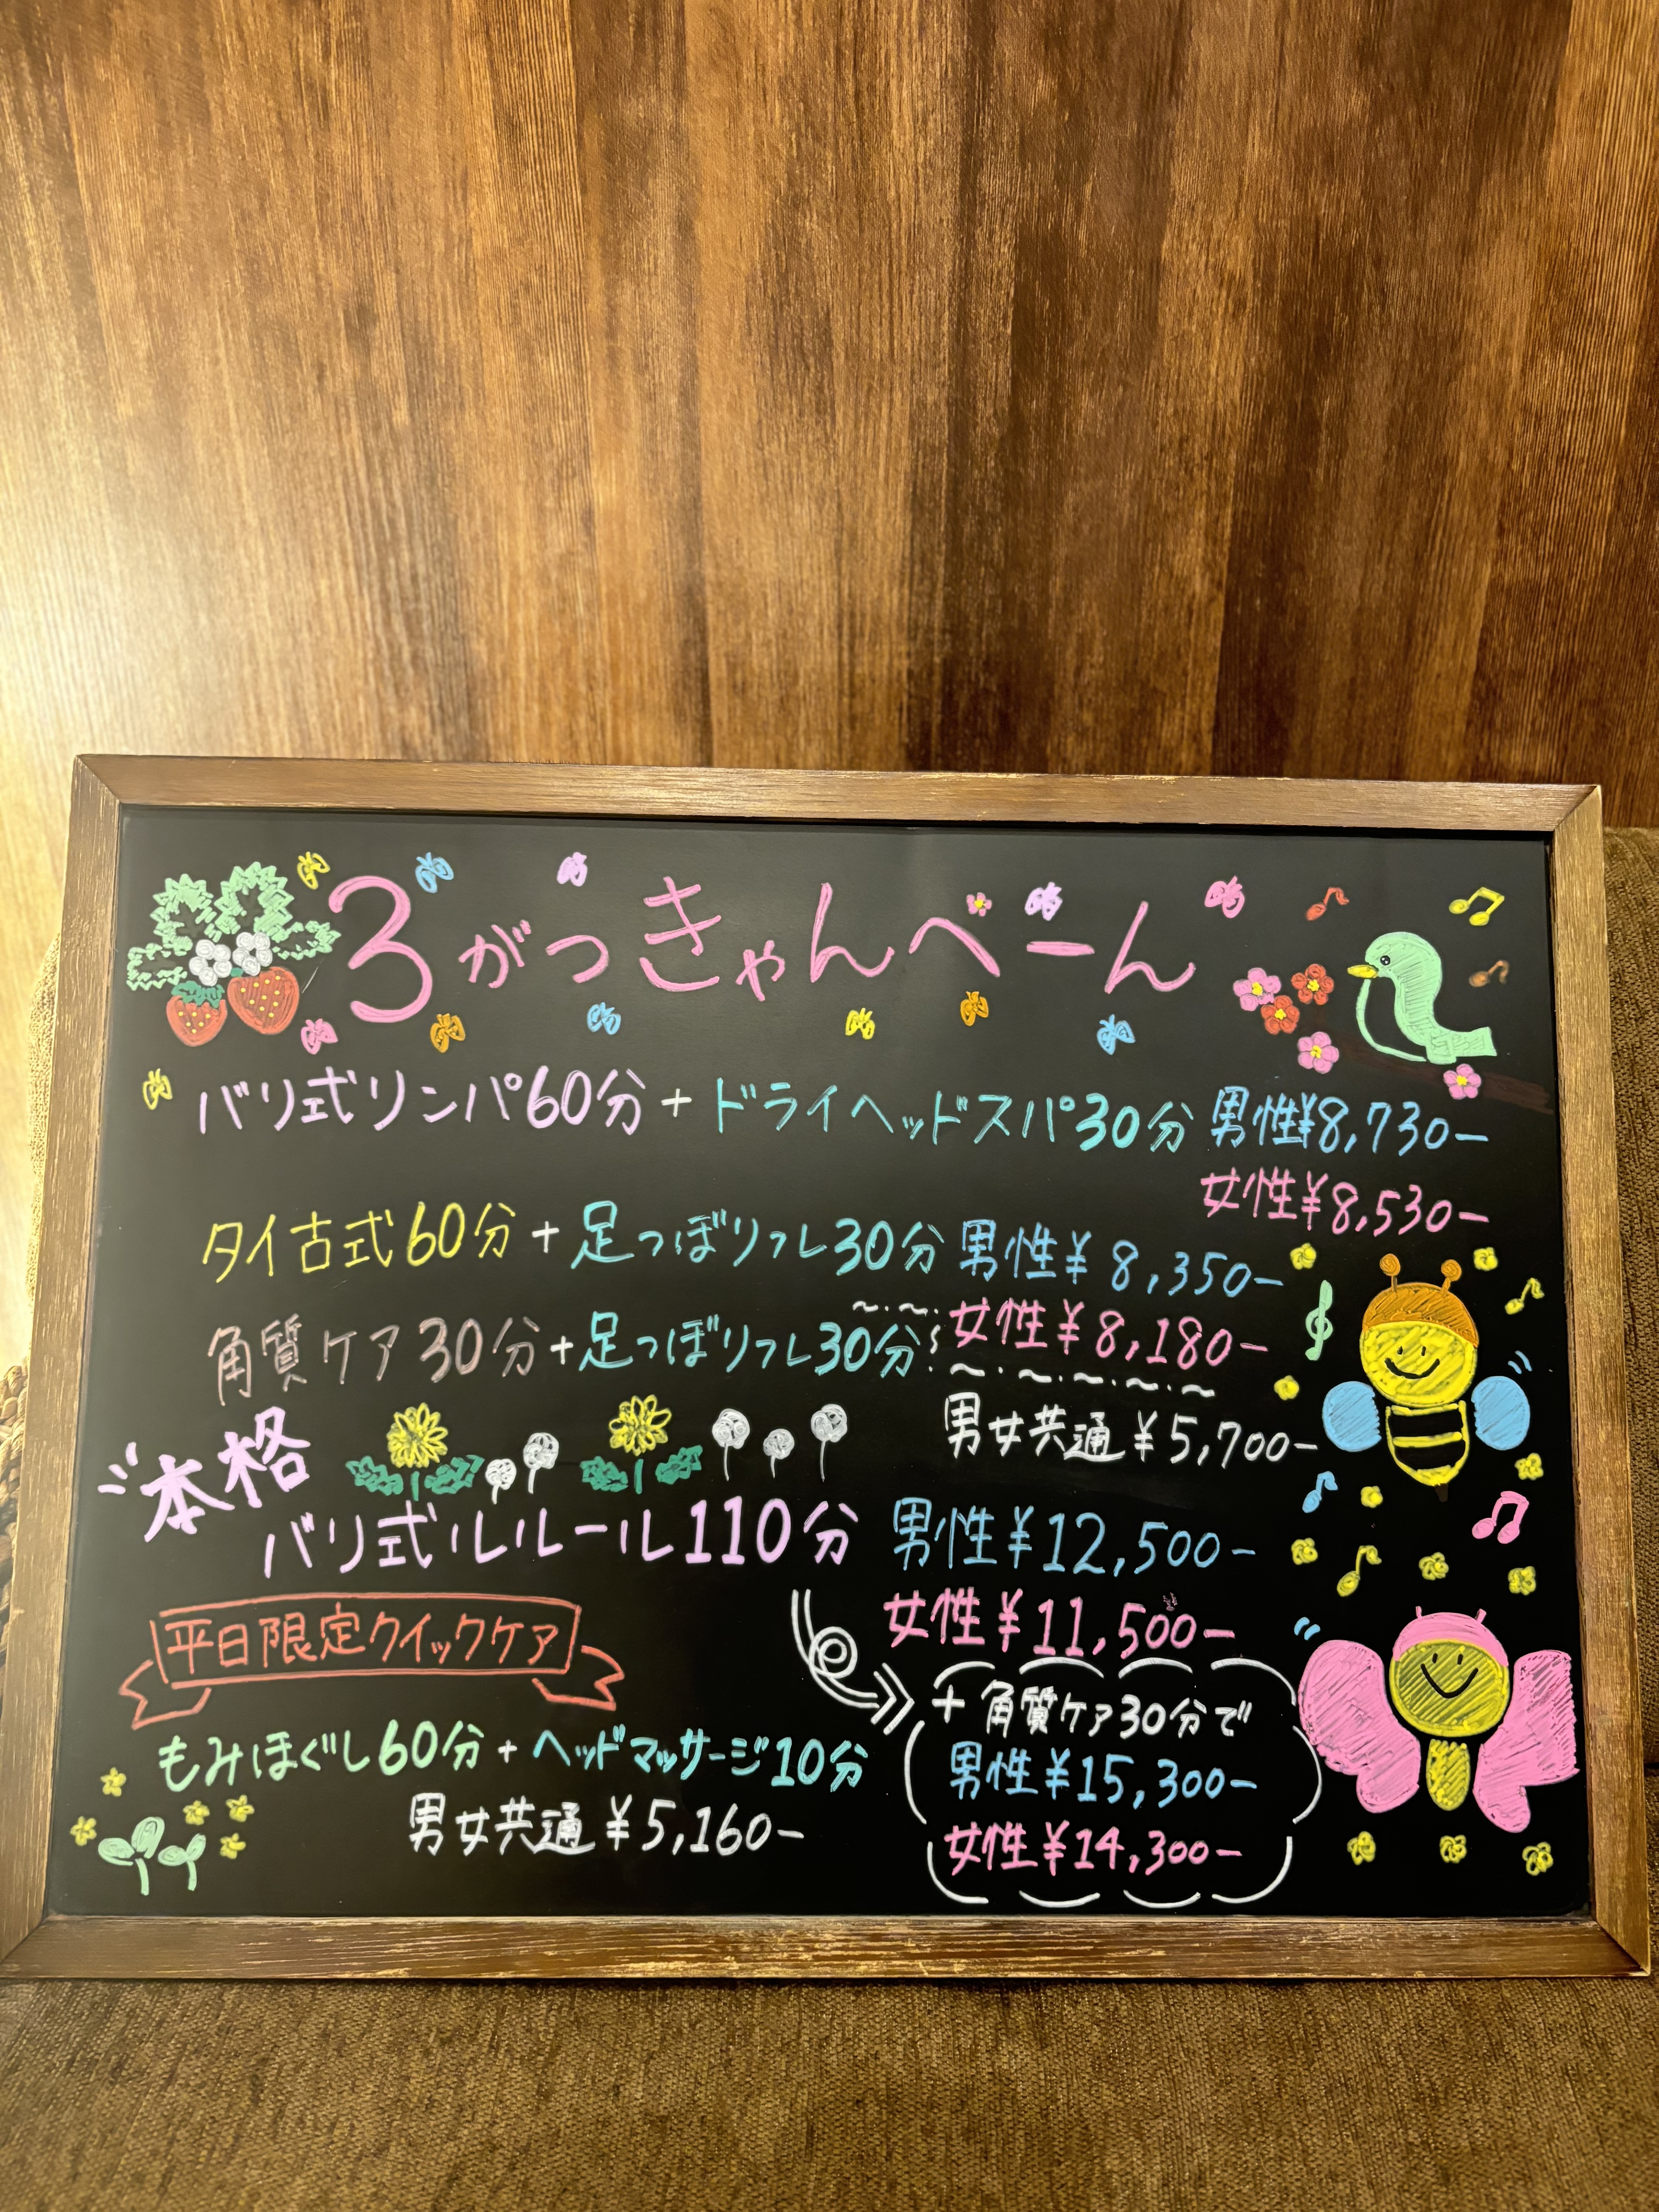 3がつきゃんぺーん
バリ式リンパ60分+ドライヘッドスパ30分 男性¥8,730-
女性¥8,530-
タイ古式60分+足つぼリフレ30分 男性¥8,350-
女性¥8,180-
角質ケア30分+足つぼリフレ30分
男女共通¥5,700-
本格
バリ式ルルール110分 男性¥12,500-
女性¥11,500-
+角質ケア30分で
男性¥15,300-
女性¥14,300-
平日限定クイックケア
もみほぐし60分+ヘッドマッサージ10分
男女共通¥5,160-